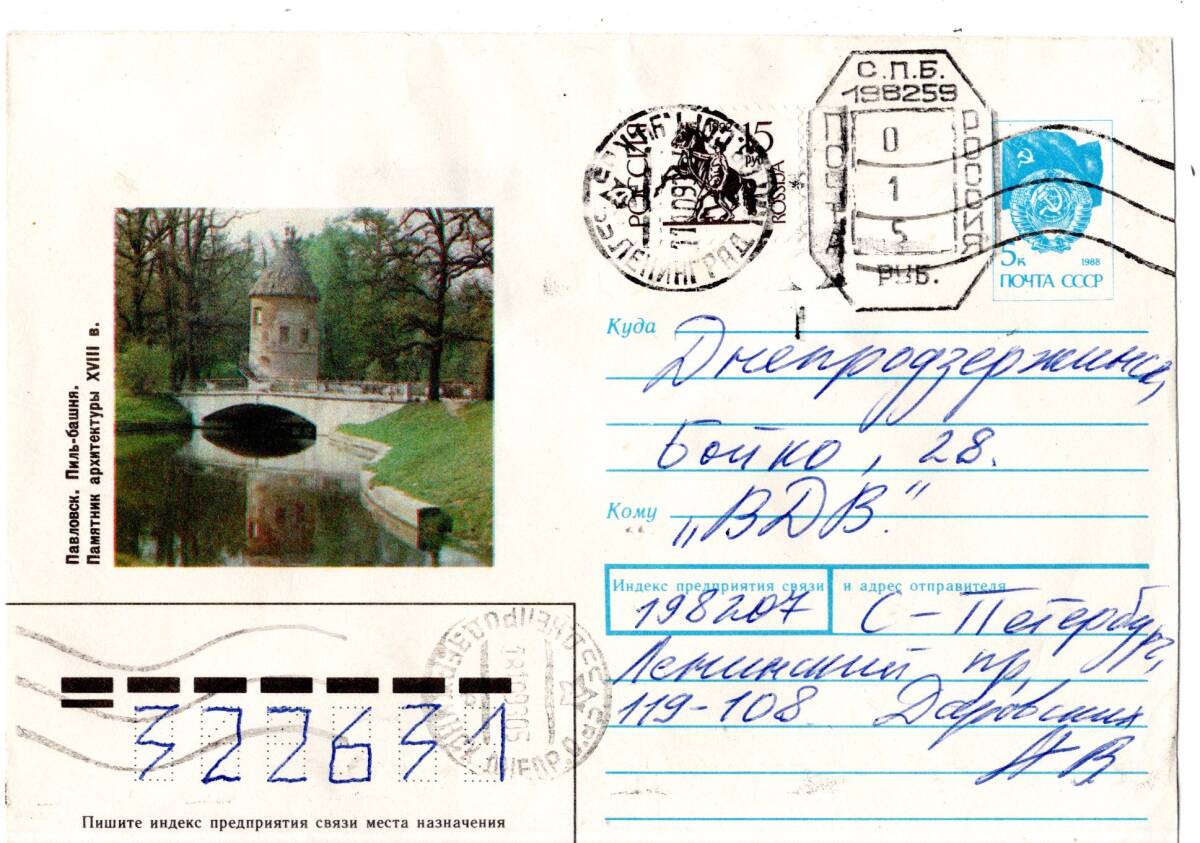 С.П.Б.
198259
ПОЧТА
РОССИЯ
0
1
5
РУБ.
РОССИЯ
1992
15
РУБ
ROSSIJA
ЛЕНИНГРАД
5к
1988
ПОЧТА СССР
Павловск. Пиль-башня.
Памятник архитектуры XVIII в.
Куда Днепродзержинск,
Бойко, 28.
Кому „ВДВ."
Индекс предприятия связи и адрес отправителя
198207 С-Петербург,
Ленинский пр,
119-108 Добровских
НВ
322631
Пишите индекс предприятия связи места назначения